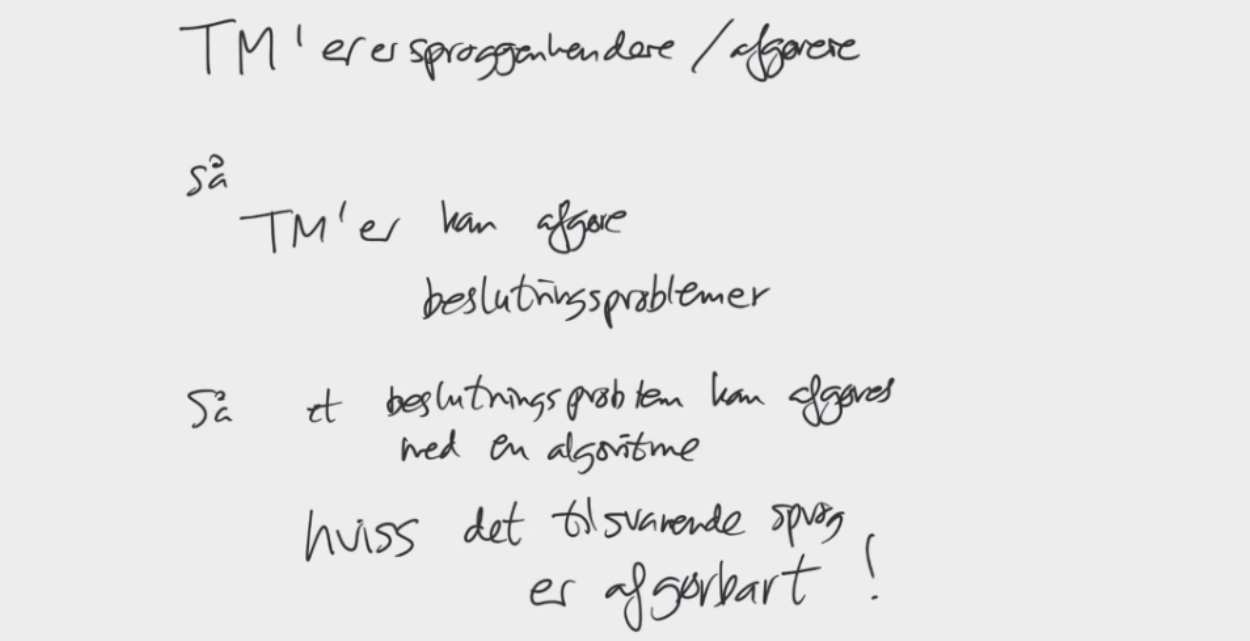 TM'er er sproggenkendere / afgørere
Så
TM'er kan afgøre
beslutningsproblemer
Så et beslutningsproblem kan afgøres
med en algoritme
hviss det tilsvarende sprog
er afgørbart !